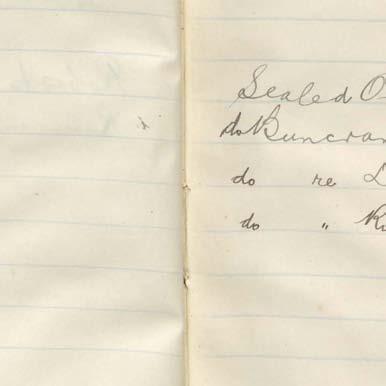 Sealed O
do Buncran
do re L
do " K